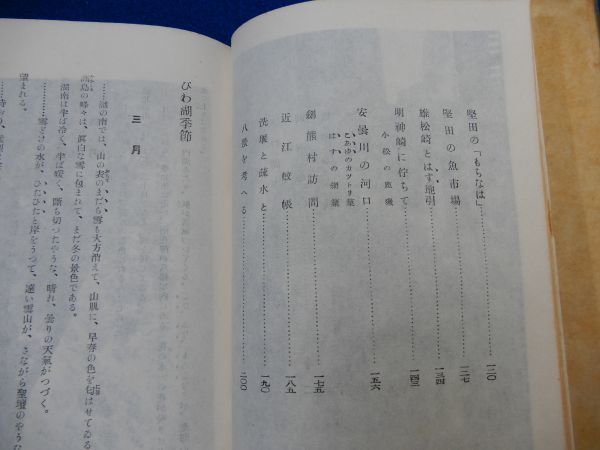 堅田の「もちなは」…………一二〇
堅田の魚市場…………一二七
雄松崎とはす地引…………一三四
明神崎に佇ちて…………一四三
小松の鹿飛
安曇川の河口…………一五六
こあゆのカツトリ簗
はすの網簗
劒熊村訪問…………一七五
近江蚊帳…………一八五
洗堰と疎水と…………一九〇
八景を考へる…………二〇〇
びわ湖季節
三月
……湖の南では、山の表のまだら雪も大方消えて、山肌に、早春の色を匂はせてゐる
湖島の峰々は、眞白な雪に包まれて、まだ冬の景色である。
湖南は半ば冷く、半ば暖く、斷ち切つたやうな、晴れ、曇りの天氣がつづく。
……雪どけの水が、ひたひたと岸をうつて、遠い雪山が、さながら聖壇のやうな
望まれる。